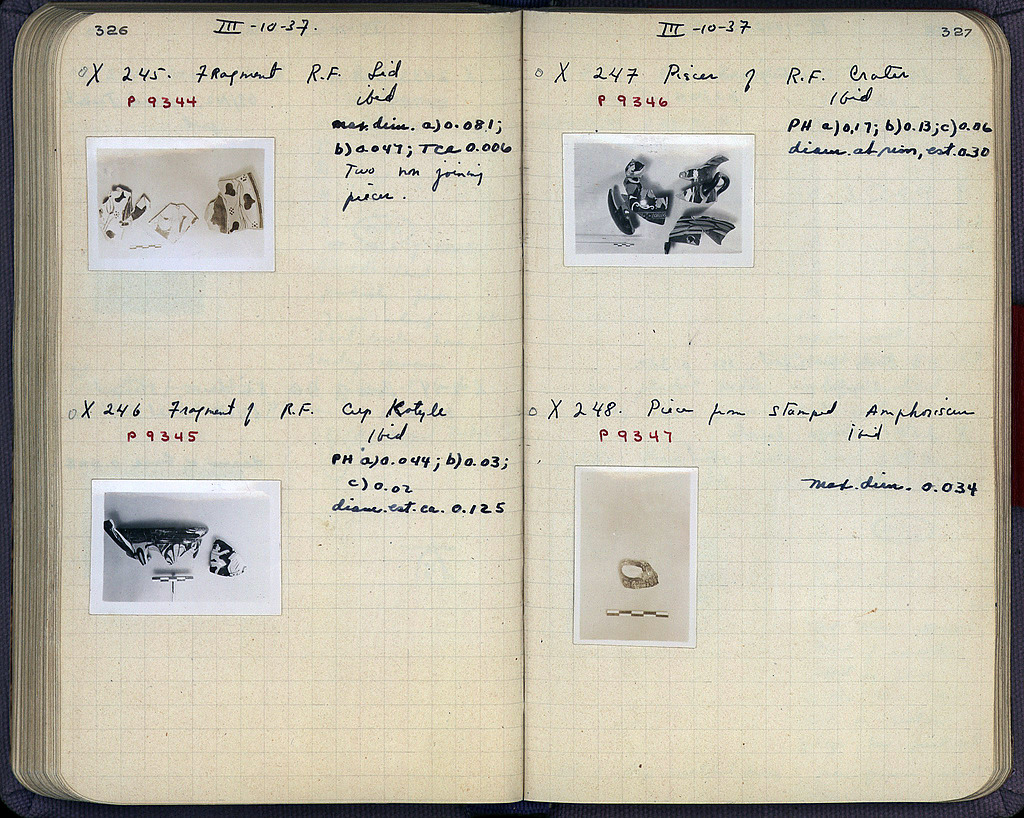 326
III -10-37.
X 245. Fragment R.F. Lid
ibid
P 9344
max. dim. a) 0.081;
b) 0.047; TCR 0.006
Two non joining
pieces.
X 246 Fragment of R.F. Cup Kotyle
Ibid
P 9345
PH a) 0.044; b) 0.03;
c) 0.02
diam. est. ca. 0.125
III -10-37
327
X 247 Pieces of R.F. Crater
Ibid
P 9346
PH a) 0.17; b) 0.13; c) 0.06
diam. at rim, est. 0.30
X 248. Piece from Stamped Amphoriscus
ibid
P 9347
max. dim. 0.034